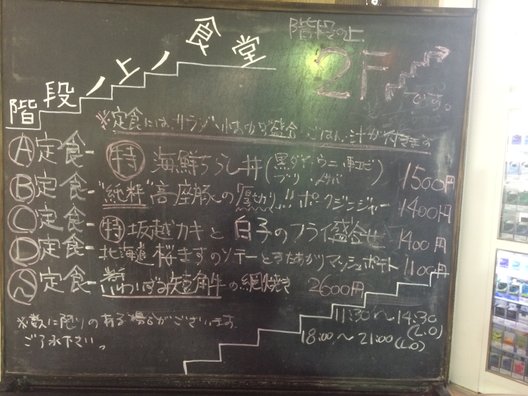 階段ノ上ノ食堂
階段の上
2F
です。
※定食には、サラダ、小おかず盛合、ごはん、汁が付きます
Ⓐ定食- ㊕海鮮ちらし丼(黒ダイ、ウニ、甘エビ
ブリ、
1500円
Ⓑ定食- "純粋"高座豚の厚切り!!ポークジンジャー 1400円
Ⓒ定食- ㊕坂越カキと白子のフライ盛合せ 1400円
Ⓓ定食- 北海道桜ますのソテーときたあかりマッシュポテト 1100円
定食- 短角牛の網焼き 2600円
※数に限りのある場合がございます。
ご了承下さい。
11:30〜14:30
(L.O)
18:00〜21:00(L.O)